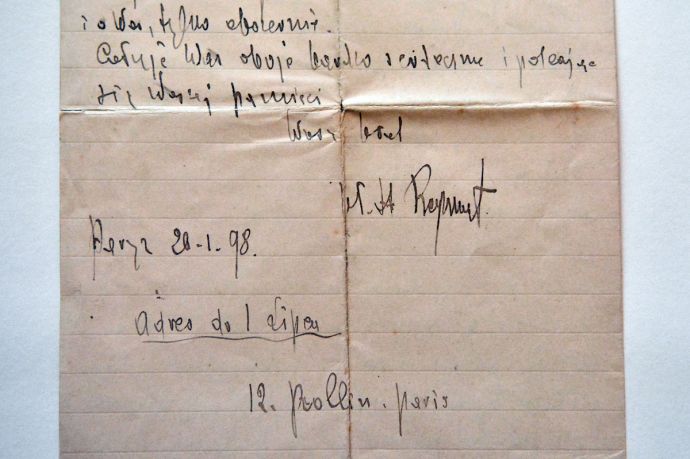 i o Was, tylko obolesnie.
Całuję Was oboje bardzo serdecznie i polecając
się Waszej pamięci
Wasz brat
Wł. St Reymont.
Paryż 20-1.98.
Adres do 1 Lipca
12. Rollin. Paris